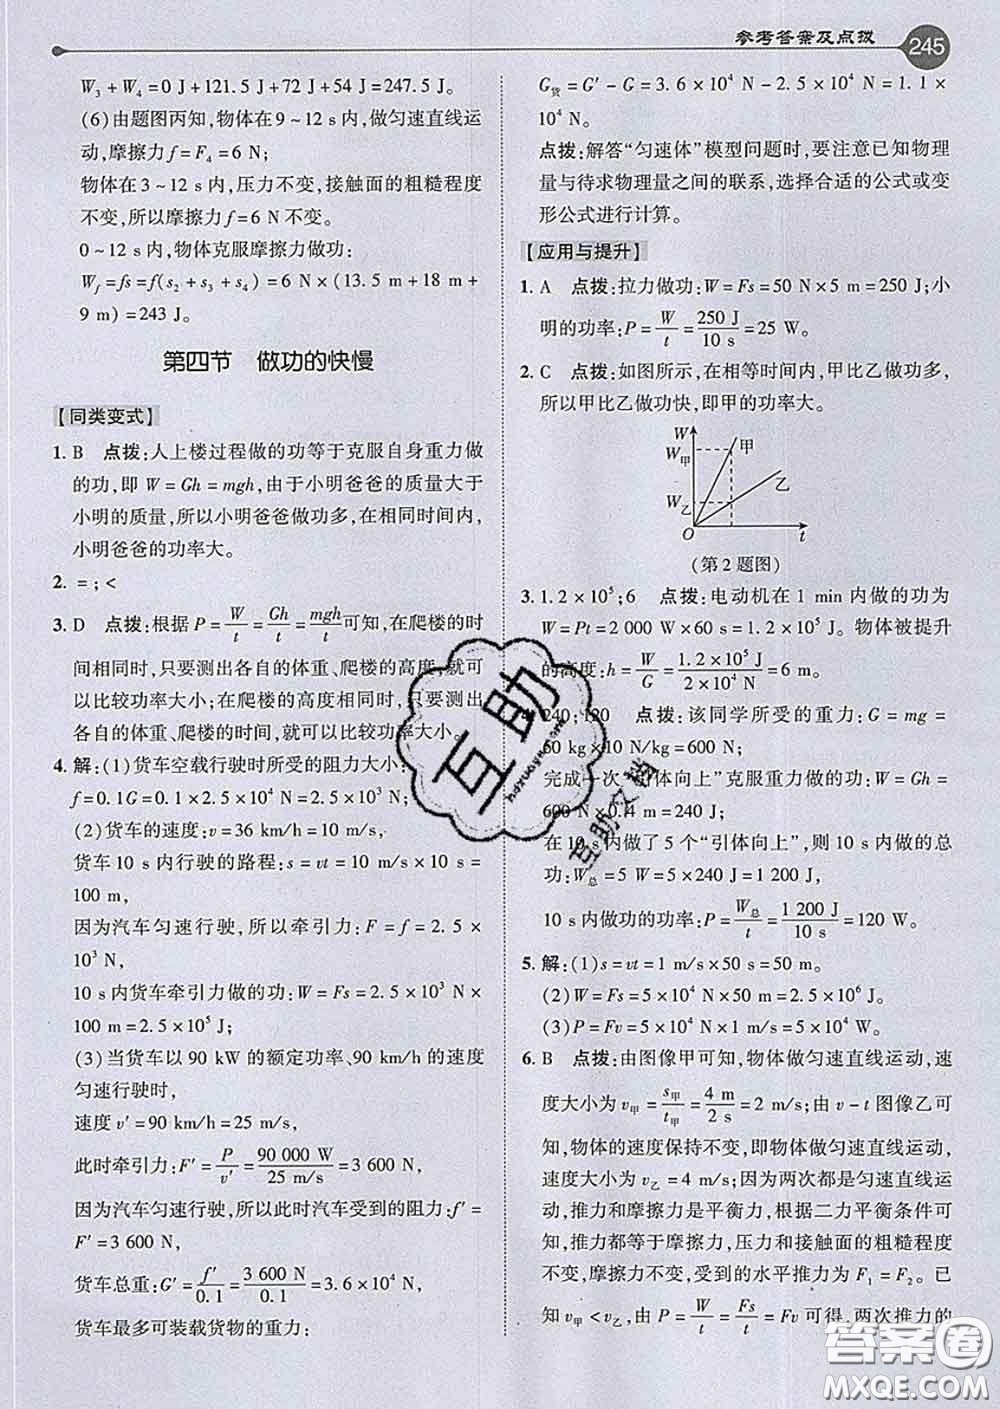 参考答案及点拨
245
W₃+W₄=0 J+121.5 J+72 J+54 J=247.5 J。
(6)由题图丙知,物体在9~12 s内,做匀速直线运
动,摩擦力f=F₄=6 N;
物体在3~12 s内,压力不变,接触面的粗糙程度
不变,所以摩擦力f=6 N不变。
0~12 s内,物体克服摩擦力做功:
W_f=fs=f(s₂+s₃+s₄)=6 N×(13.5 m+18 m+
9 m)=243 J。
第四节 做功的快慢
【同类变式】
1. B 点拨:人上楼过程做的功等于克服自身重力做
的功,即W=Gh=mgh,由于小明爸爸的质量大于
小明的质量,所以小明爸爸做功多,在相同时间内,
小明爸爸的功率大。
2. =;<
3. D 点拨:根据P=W/t=Gh/t=mgh/t可知,在爬楼的时
间相同时,只要测出各自的体重、爬楼的高度,就可
以比较功率大小;在爬楼的高度相同时,只要测出
各自的体重、爬楼的时间,就可以比较功率大小。
4. 解:(1)货车空载行驶时所受的阻力大小:
f=0.1G=0.1×2.5×10⁴ N=2.5×10³ N。
(2)货车的速度:v=36 km/h=10 m/s,
货车10 s内行驶的路程:s=vt=10 m/s×10 s=
100 m,
因为汽车匀速行驶,所以牵引力:F=f=2.5×
10³ N,
10 s内货车牵引力做的功:W=Fs=2.5×10³ N×
100 m=2.5×10⁵ J;
(3)当货车以90 kW的额定功率、90 km/h的速度
匀速行驶时,
速度v′=90 km/h=25 m/s,
此时牵引力:F′=P/v′=90 000 W/25 m/s=3 600 N,
因为汽车匀速行驶,所以此时汽车受到的阻力:f′=
F′=3 600 N,
货车总重:G′=f′/0.1=3 600 N/0.1=3.6×10⁴ N,
货车最多可装载货物的重力:
G货=G′-G=3.6×10⁴ N-2.5×10⁴ N=1.1×
10⁴ N。
点拨:解答“匀速体”模型问题时,要注意已知物理
量与待求物理量之间的联系,选择合适的公式或变
形公式进行计算。
【应用与提升】
1. A 点拨:拉力做功:W=Fs=50 N×5 m=250 J;小
明的功率:P=W/t=250 J/10 s=25 W。
2. C 点拨:如图所示,在相等时间内,甲比乙做功多,
所以甲比乙做功快,即甲的功率大。
W
W甲
甲
W乙
乙
O
t
(第2题图)
3. 1.2×10⁵;6 点拨:电动机在1 min内做的功为
W=Pt=2 000 W×60 s=1.2×10⁵ J。物体被提升
的高度:h=W/G=1.2×10⁵ J/2×10⁴ N=6 m。
240;120 点拨:该同学所受的重力:G=mg=
60 kg×10 N/kg=600 N;
完成一次“引体向上”克服重力做的功:W=Gh=
600 N×0.4 m=240 J;
在10 s内做了5个“引体向上”,则所做的总
功:W总=5 W=5×240 J=1 200 J,
10 s内做功的功率:P=W总/t=1 200 J/10 s=120 W。
5. 解:(1)s=vt=1 m/s×50 s=50 m。
(2)W=Fs=5×10⁴ N×50 m=2.5×10⁶ J。
(3)P=Fv=5×10⁴ N×1 m/s=5×10⁴ W。
6. B 点拨:由图像甲可知,物体做匀速直线运动,速
度大小为v甲=s甲/t甲=4 m/2 s=2 m/s;由v-t图像乙可
知,物体的速度保持不变,即物体做匀速直线运动,
速度大小为v乙=4 m/s;因为两次都是匀速直线运
动,推力和摩擦力是平衡力,根据二力平衡条件可
知,推力都等于摩擦力,压力和接触面的粗糙程度
不变,摩擦力不变,受到的水平推力F₁=F₂。已
知v甲<v乙,由P=W/t=Fs/t=Fv可得,两次推力的
互助
互助文档
答案圈
MXQE.COM